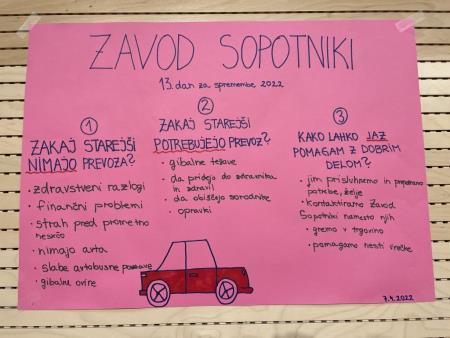 ZAVOD SOPOTNIKI
13. dan za spremembe 2022
1
ZAKAJ STAREJŠI
NIMAJO PREVOZA?
• zdravstveni razlogi
• finančni problemi
• strah pred prometno
nesrečo
• nimajo avta
• slabe avtobusne povezave
• gibalne ovire
2
ZAKAJ STAREJŠI
POTREBUJEJO PREVOZ?
• gibalne težave
• da pridejo do zdravnika
in zdravil
• da obiščejo sorodnike
• opravki
3
KAKO LAHKO JAZ
POMAGAM Z DOBRIM
DELOM?
• jim prisluhnemo in prepoznamo
potrebe, želje
• kontaktiramo Zavod
Sopotniki namesto njih
• gremo v trgovino
• pomagamo nesti vrečke
7.4.2022